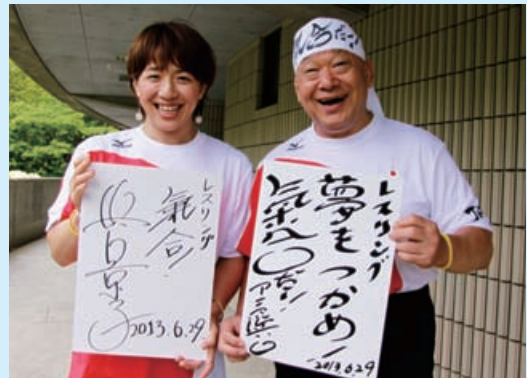 レスリング
氣合!
浜口京子
2013.6.29
レスリング
夢をつかめ!
氣合だー!
アニマル浜口
2013.6.29